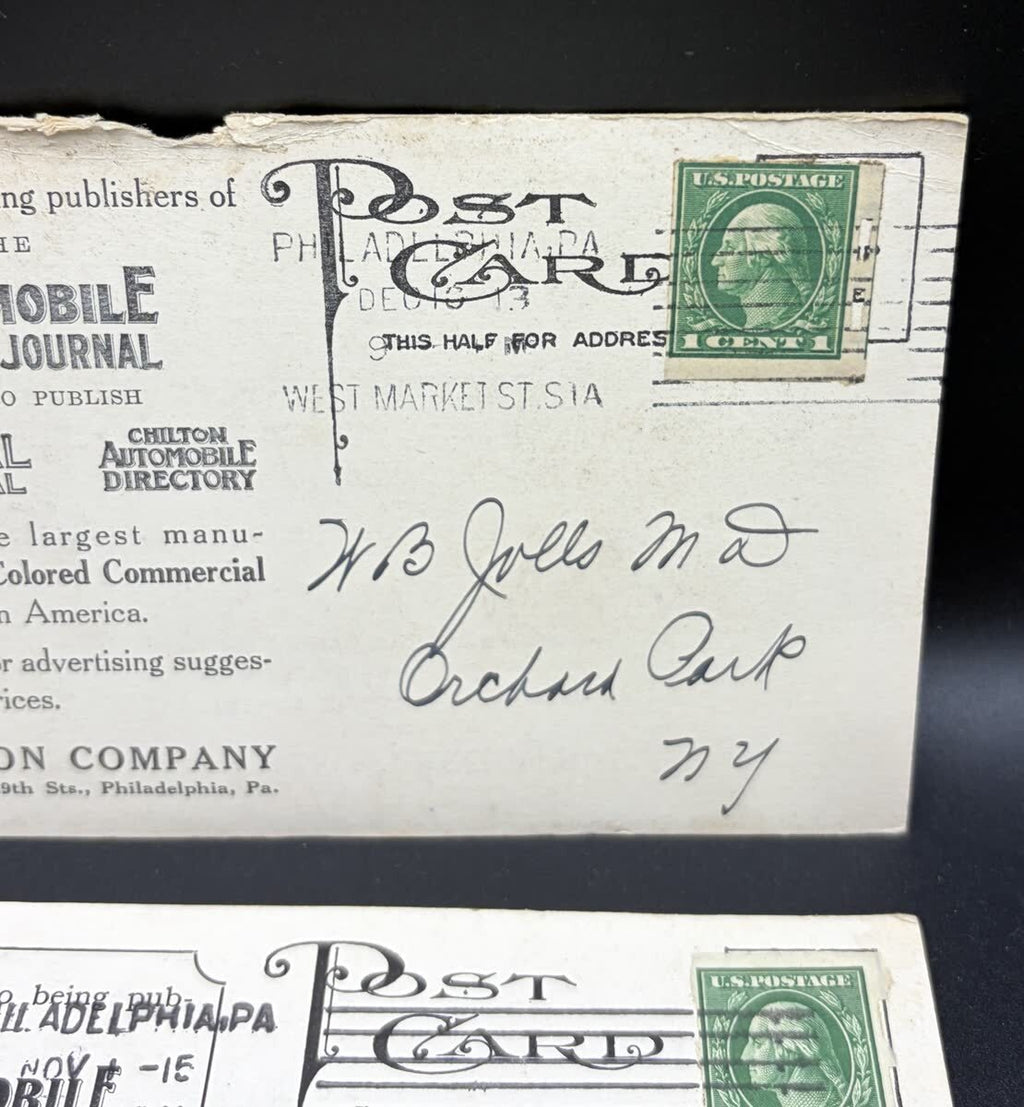 ng publishers of
HE
MOBILE
JOURNAL
O PUBLISH
AL
AL
CHILTON
AUTOMOBILE
DIRECTORY
e largest manu-
Colored Commercial
n America.
r advertising sugges-
rices.
ON COMPANY
9th Sts., Philadelphia, Pa.
POST
CARD
THIS HALF FOR ADDRES
PHILADELPHIA, PA
DEC 13
WEST MARKET ST. STA
U.S. POSTAGE
1 CENT 1
W B Jolls M D
Orchard Park
N Y
o being pub-
ILADELPHIA, PA
NOV -15
OBILE
POST
CARD
U.S. POSTAGE